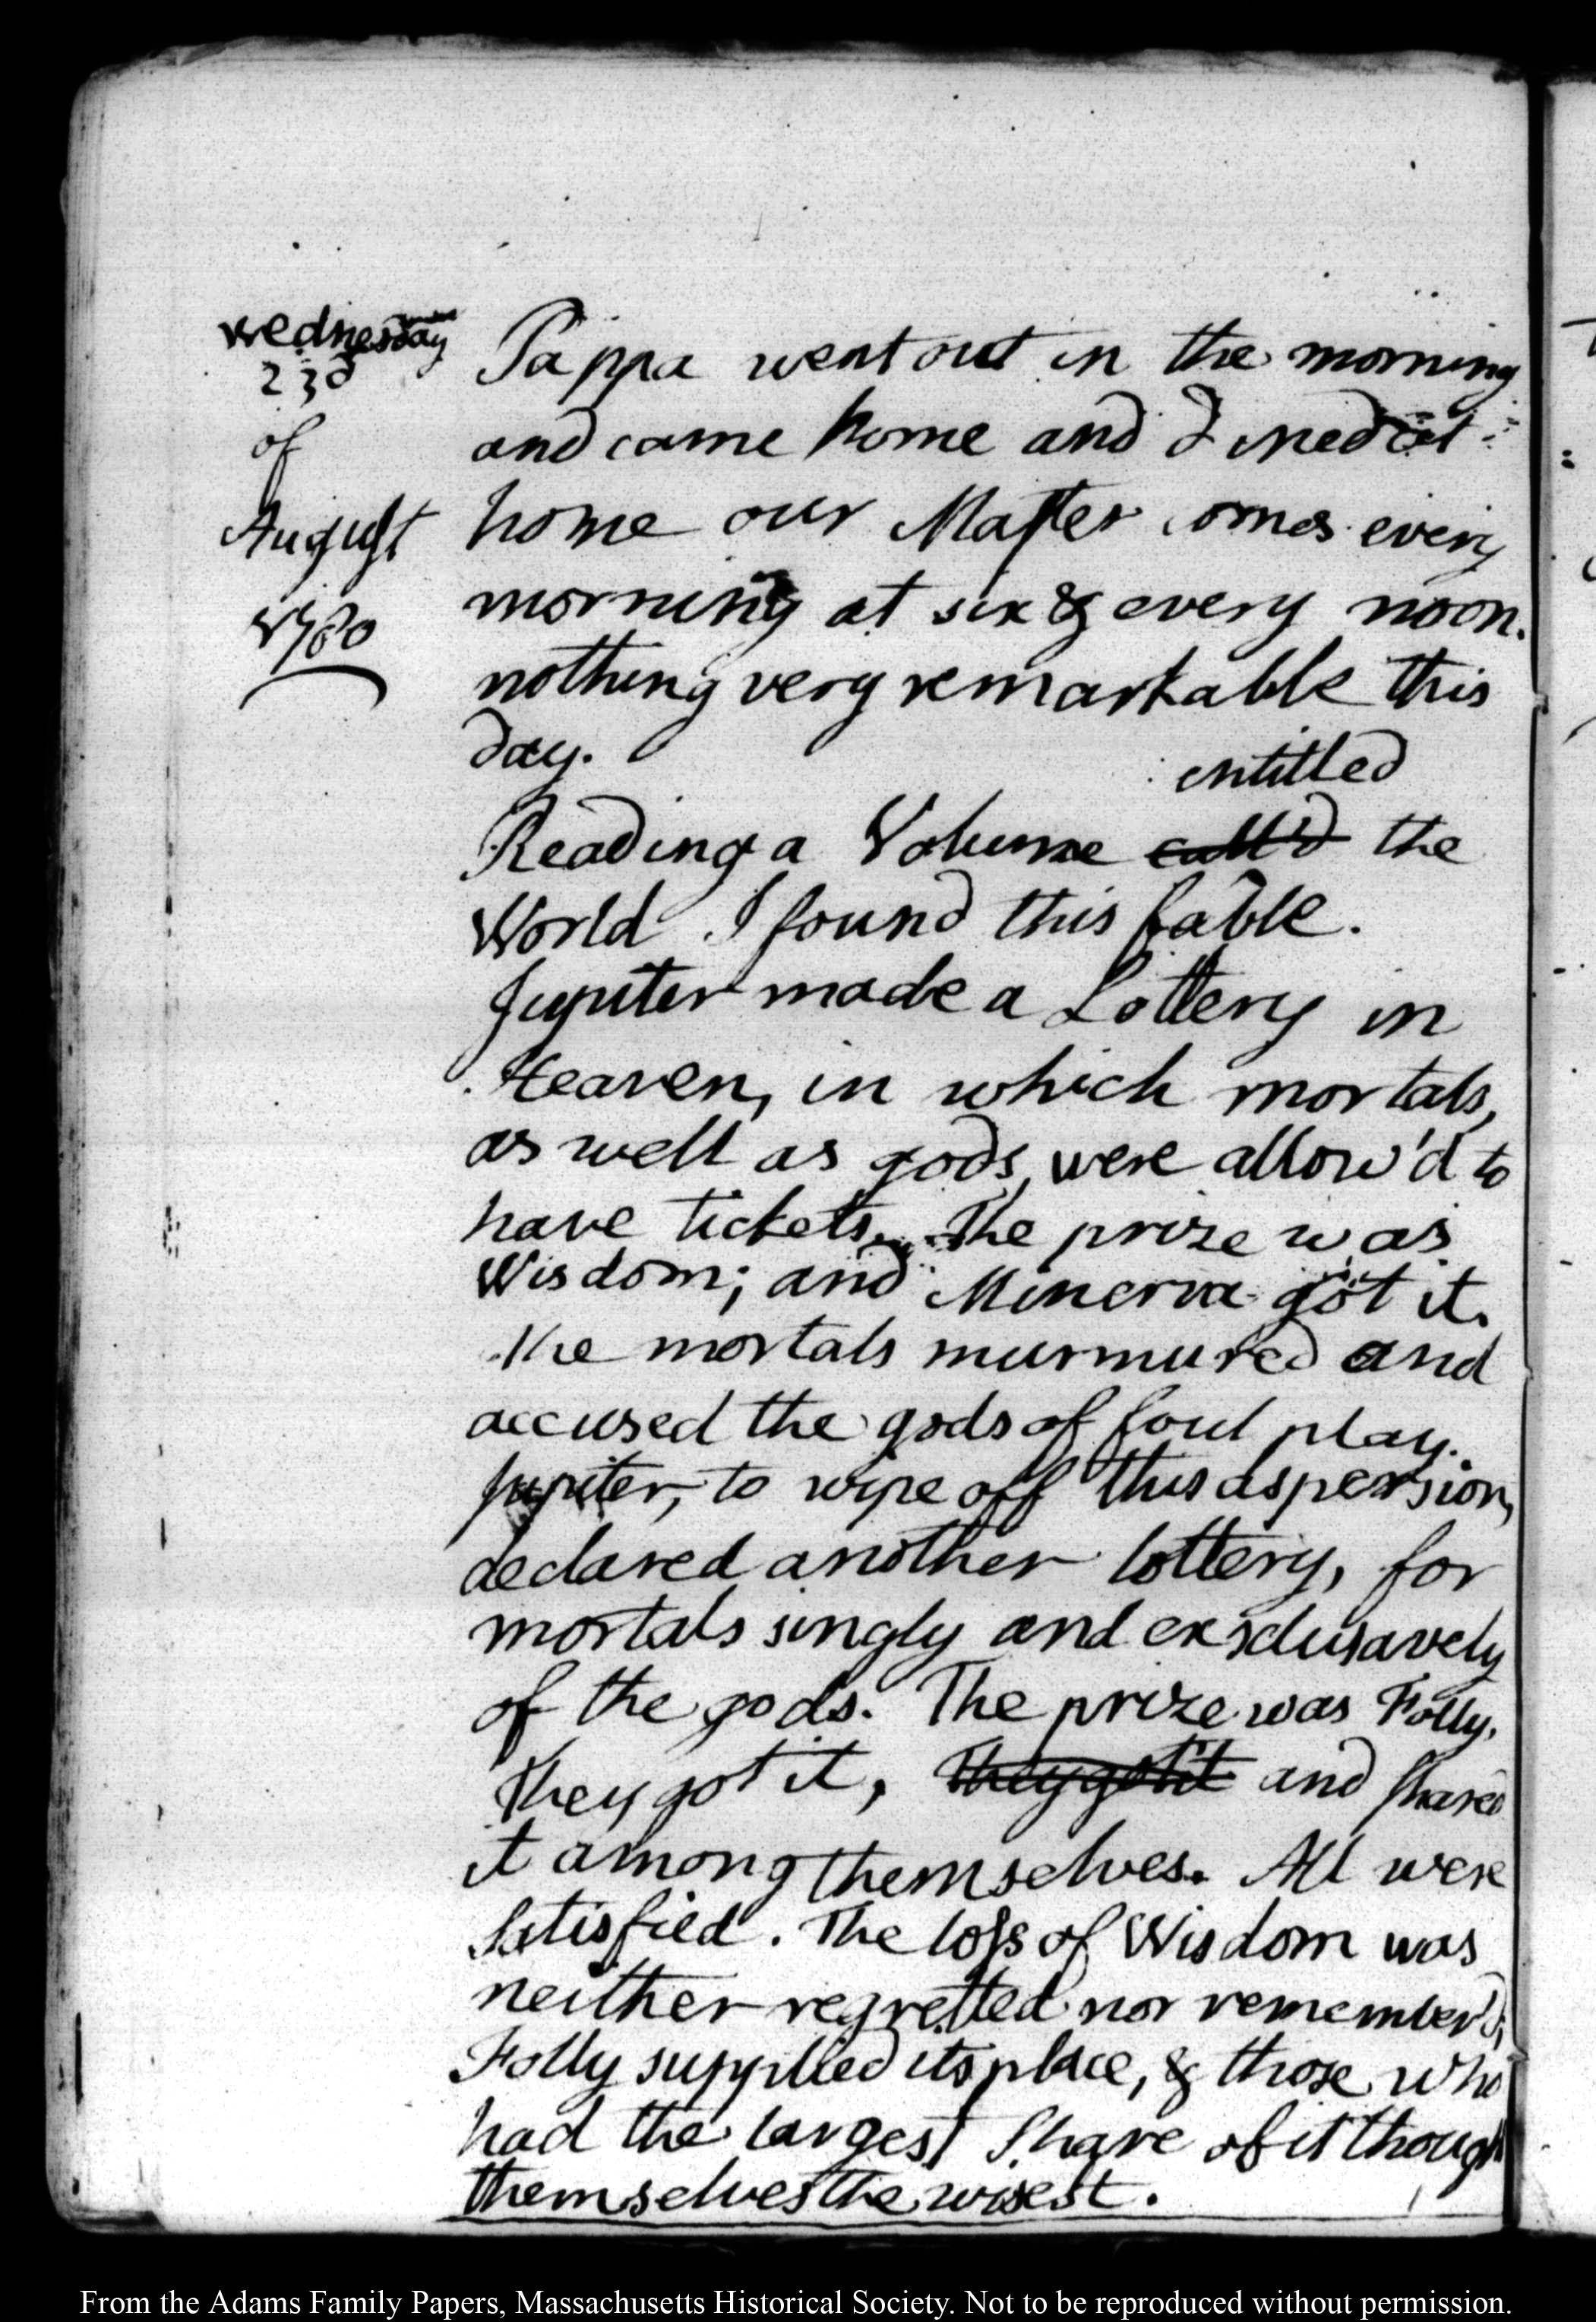 Wednesday
23d
of
August
1780
Pappa went out in the morning
and came home and dined at
home our Master comes every
morning at six & every noon.
nothing very remarkable this
day.
entitled
Reading a Volume call'd the
World I found this fable.
Jupiter made a Lottery in
Heaven, in which mortals,
as well as gods, were allow'd to
have tickets. The prize was
Wisdom; and Minerva got it.
The mortals murmured and
accused the gods of foul play.
Jupiter, to wipe off this aspersion,
declared another lottery, for
mortals singly and exsclusavely
of the gods. The prize was Folly.
They got it, They got it and shared
it among themselves. All were
Satisfied. The loss of Wisdom was
neither regretted nor remember'd,
Folly supplied its place, & those who
had the largest Share of it though
themselves the wisest.
From the Adams Family Papers, Massachusetts Historical Society. Not to be reproduced without permission.